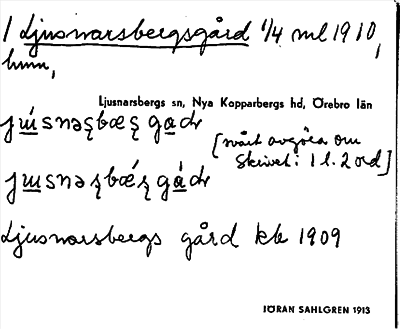 1 Ljusnarsbergsgård 1/4 ml 1910,
hmn,
Ljusnarsbergs sn, Nya Kopparbergs hd, Örebro län
[svårt avgöra om
skrivet: 1 l. 2 ord]
Ljusnarsbergs gård kk 1909
JÖRAN SAHLGREN 1913